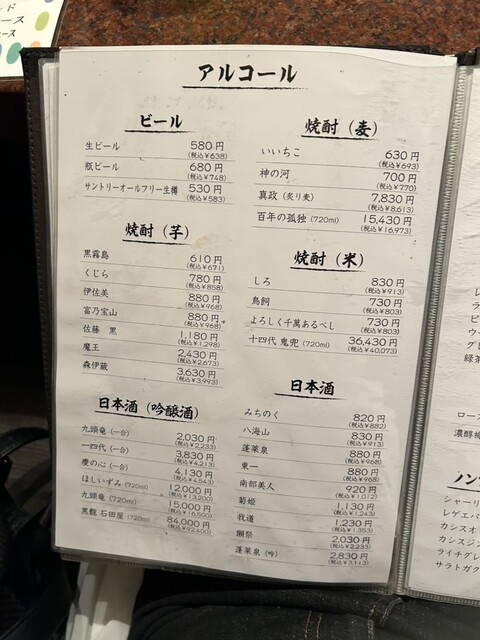 アルコール
ビール
生ビール 580円
(税込¥638)
瓶ビール 680円
(税込¥748)
サントリーオールフリー生樽 530円
(税込¥583)
焼酎(芋)
黒霧島 610円
(税込¥671)
くじら 780円
(税込¥858)
伊佐美 880円
(税込¥968)
富乃宝山 880円
(税込¥968)
佐藤 黒 1,180円
(税込¥1,298)
魔王 2,430円
(税込¥2,673)
森伊蔵 3,630円
(税込¥3,993)
日本酒(吟醸酒)
九頭竜(一合) 2,030円
(税込¥2,233)
一四代(一合) 3,830円
(税込¥4,213)
慶の心(一合) 4,130円
(税込¥4,543)
ほしいずみ(720ml) 12,000円
(税込¥13,200)
九頭竜(720ml) 15,000円
(税込¥16,500)
黒龍 石田屋(720ml) 84,000円
(税込¥92,400)
焼酎(麦)
いいちこ 630円
(税込¥693)
神の河 700円
(税込¥770)
真政(炙り麦) 7,830円
(税込¥8,613)
百年の孤独(720ml) 15,430円
(税込¥16,973)
焼酎(米)
しろ 830円
(税込¥913)
鳥飼 730円
(税込¥803)
よろしく千萬あるべし 730円
(税込¥803)
十四代 鬼兜(720ml) 36,430円
(税込¥40,073)
日本酒
みちのく 820円
(税込¥882)
八海山 830円
(税込¥913)
蓬莱泉 880円
(税込¥968)
東一 880円
(税込¥968)
南部美人 920円
(税込¥1,012)
菊姫 1,130円
(税込¥1,243)
我道 1,230円
(税込¥1,353)
獺祭 2,030円
(税込¥2,233)
蓬莱泉(吟) 2,830円
(税込¥3,113)
緑茶
ロース
濃醇梅
ノン
シャーリ
レゲエパ
カシスオ
カシスジン
ライチグレ
サラトガク